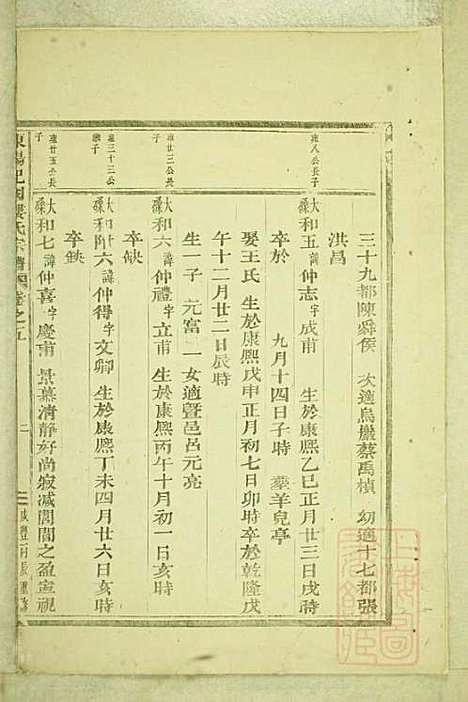 三十九都陳舜侯　次適烏巖蔡禹楨　幼適十七都張
洪昌
康八公長子
大和五諱仲志字成甫　生於康熙乙巳正月廿三日戌時
卒於　九月十四日子時　葬羊兒亭
娶王氏　生於康熙戊申正月初七日卯時卒於乾隆戊
午十二月廿二日辰時
生一子　元富　一女適暨邑呂元亮
康廿三公長子
大和六諱仲禮字立甫　生於康熙丙午十月初一日亥時
卒缺
康三十三公繼子
大和附六諱仲得字文卿　生於康熙丁未四月廿六日亥時
卒缺
康廿五公長子
大和七諱仲喜字慶甫　景慕清靜好尚寂滅閭閻之盈室視
氏宗譜　卷之五
二
咸豐丙辰重修